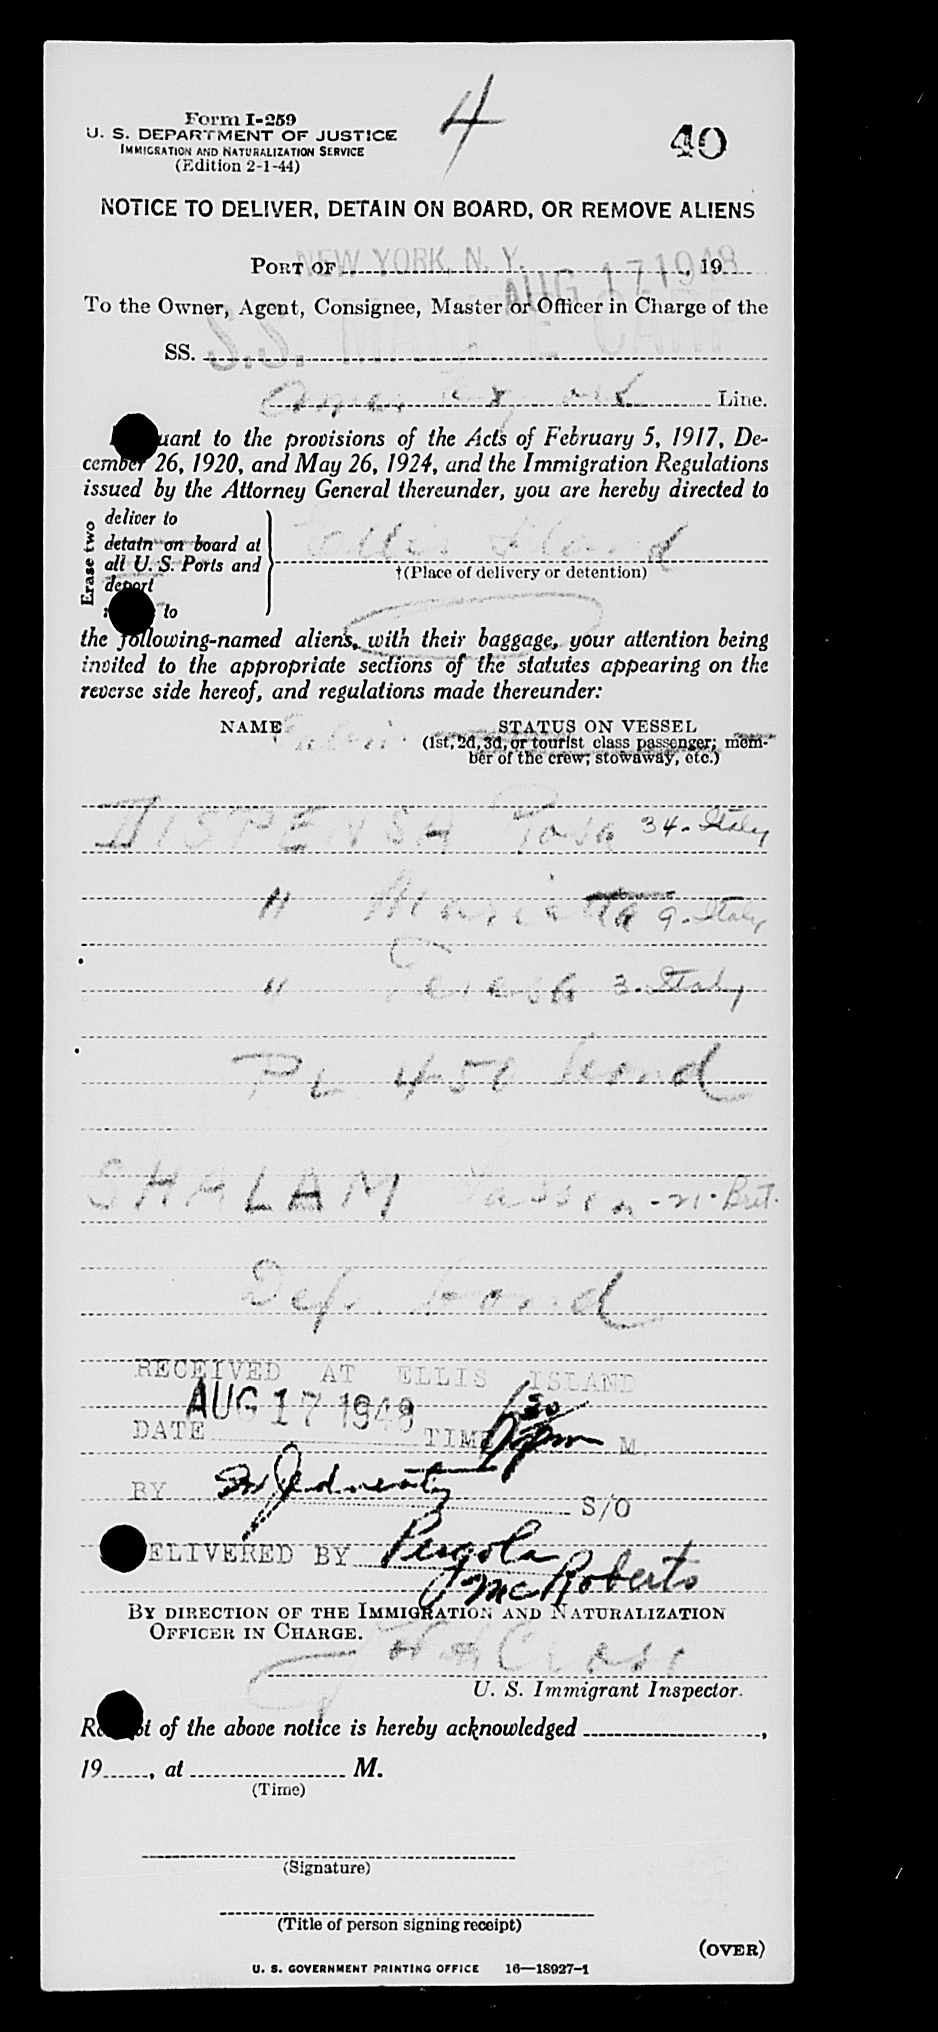 4
Form I-259
U. S. DEPARTMENT OF JUSTICE
IMMIGRATION AND NATURALIZATION SERVICE
(Edition 2-1-44)
40
NOTICE TO DELIVER, DETAIN ON BOARD, OR REMOVE ALIENS
PORT OF NEW YORK, N. Y. AUG 17 1948, 19
To the Owner, Agent, Consignee, Master or Officer in Charge of the
SS. S.S. MARINE CARP
Amer Export Line.
uant to the provisions of the Acts of February 5, 1917, De-
cember 26, 1920, and May 26, 1924, and the Immigration Regulations
issued by the Attorney General thereunder, you are hereby directed to
Erase two
deliver to
detain on board at
all U. S. Ports and
deport
to
Ellis Island
†(Place of delivery or detention)
the following-named aliens, with their baggage, your attention being
invited to the appropriate sections of the statutes appearing on the
reverse side hereof, and regulations made thereunder:
NAME
STATUS ON VESSEL
(1st, 2d, 3d, or tourist class passenger; mem-
ber of the crew; stowaway, etc.)
DISPENSA Rosa 34 - Italy
" Marietta 9 - Italy
" Teresa 3 - Italy
PL 451 bond
SHALAM - 21 - Brit.
Def. bond
RECEIVED AT ELLIS ISLAND
DATE AUG 17 1948 TIME M.
BY S/O
ELIVERED BY Pergola
McRoberts
BY DIRECTION OF THE IMMIGRATION AND NATURALIZATION
OFFICER IN CHARGE.
Cross
U. S. Immigrant Inspector.
Receipt of the above notice is hereby acknowledged ,
19 , at M.
(Time)
(Signature)
(Title of person signing receipt)
(OVER)
U. S. GOVERNMENT PRINTING OFFICE 16—18927-1